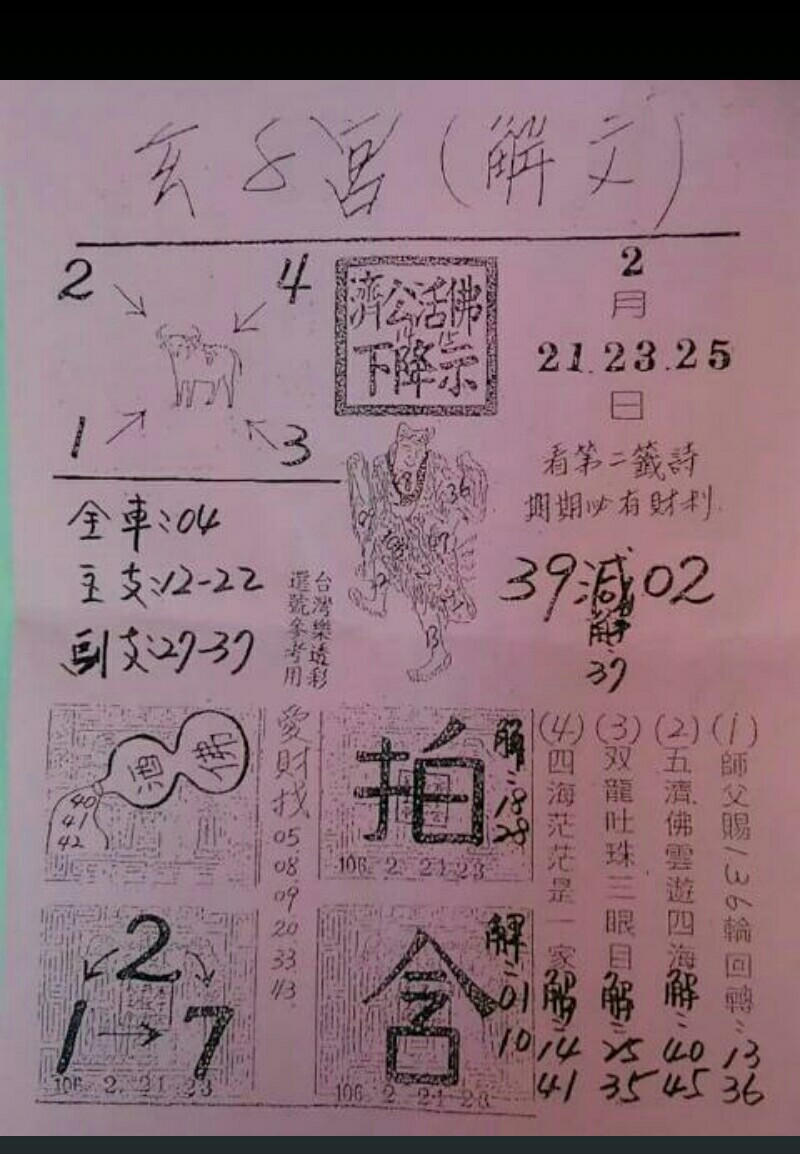 玄 子 宮 (解 文)
2 4
1 3
濟公活佛
下降示
2
月
21.23.25
日
看第二籤詩
期期必有財利
全車:04
主支:12-22
副支:27-37
台灣樂透彩
選號參考用
36
13
39減02
解:
37
酒 佛
40
41
42
愛財找
05
08
09
20
33
43
拍
106. 2. 21 23
解:
18
28
2
1 → 7
106. 2. 21 23
含
106 2. 21 23
解:
01
10
(1)師父賜136輪回轉:
13
36
(2)五濟佛雲遊四海
解:
40
45
(3)双龍吐珠三眼目
解:
25
35
(4)四海茫茫是一家
解:
14
41